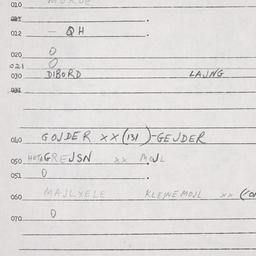 010 MURUE
012 - QH .
020 O
021 O
030 DIBORD LAJNG
031
040 GOJDER XX (131)-GEJDER
050 GREJSN XX MOJL
051 O .
060 MAJLXELE KLEJNEMOJL XX
070 O